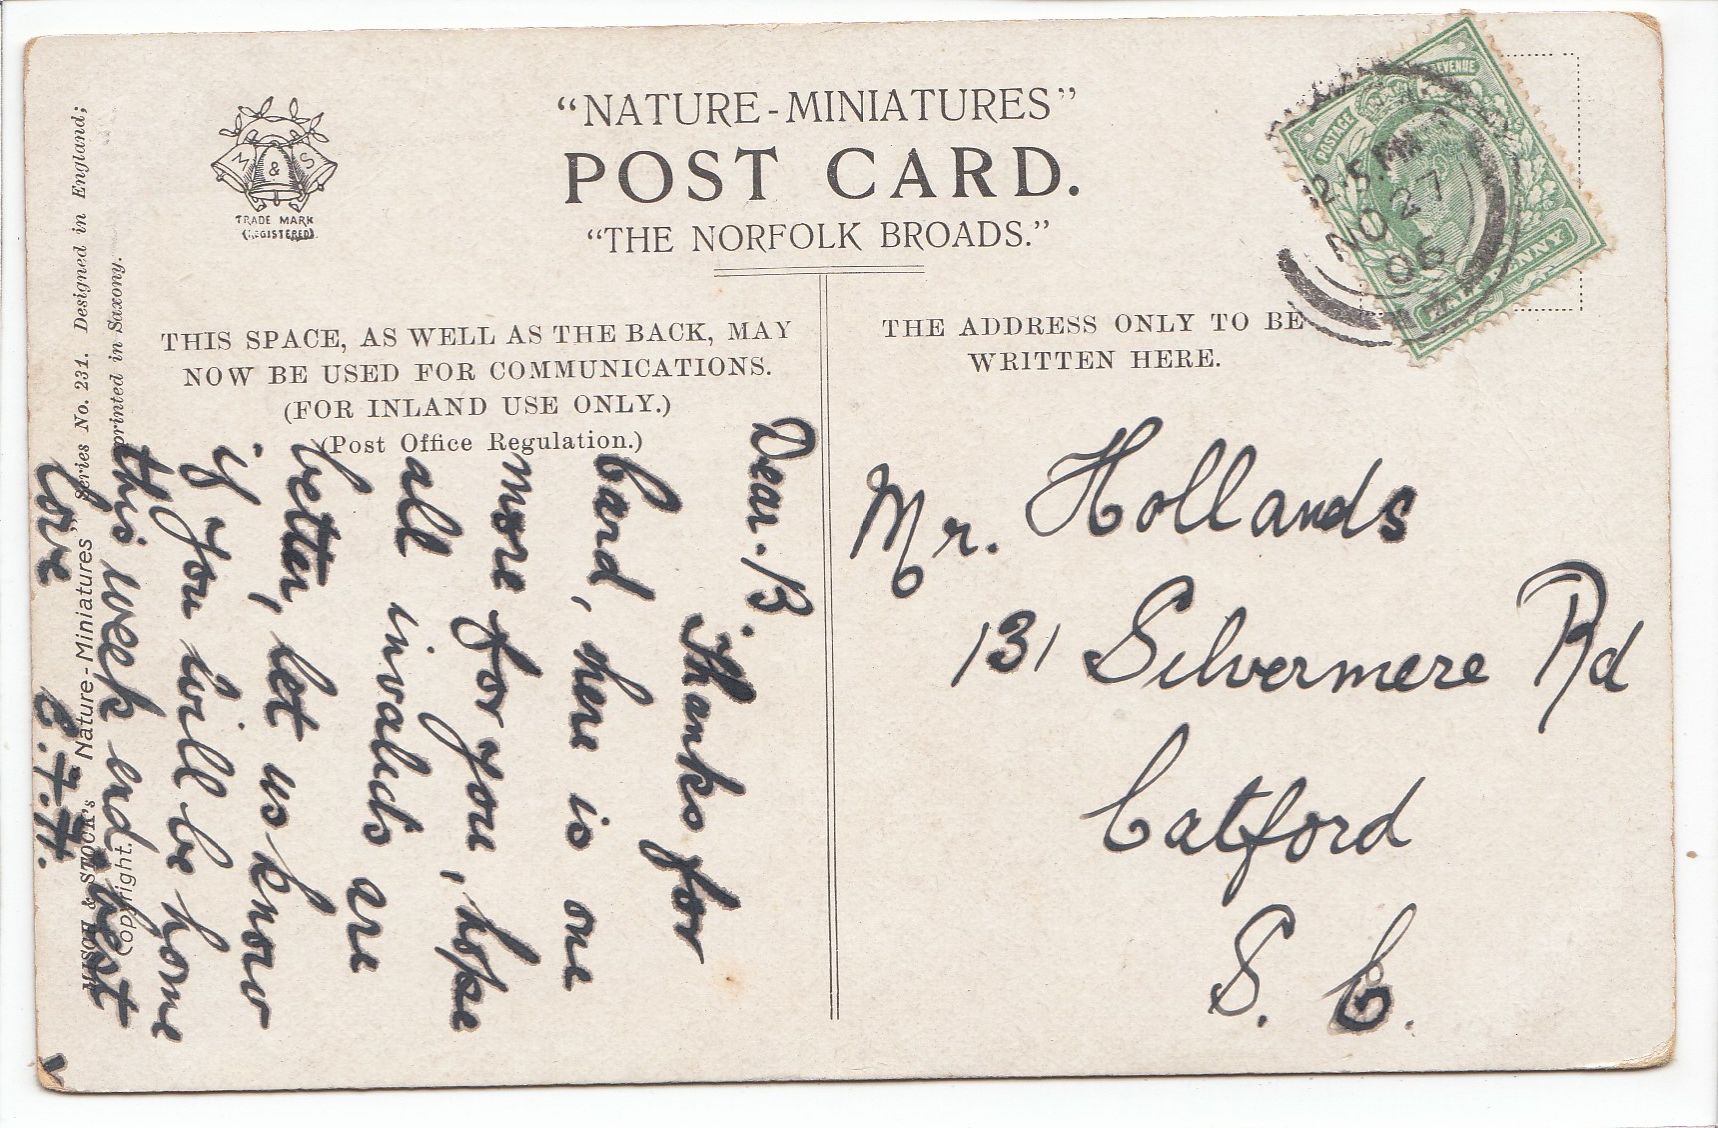 "NATURE-MINIATURES"
POST CARD.
"THE NORFOLK BROADS."
M & S
TRADE MARK
(REGISTERED).
POSTAGE REVENUE
HALFPENNY
12.15.PM
NO 27
06
THIS SPACE, AS WELL AS THE BACK, MAY
NOW BE USED FOR COMMUNICATIONS.
(FOR INLAND USE ONLY.)
(Post Office Regulation.)
THE ADDRESS ONLY TO BE
WRITTEN HERE.
Dear. B.
Thanks for
Card, here is one
more for you, hope
all invalids are
better, let us know
if you will be home
this week end, best
love E.F.H.
Mr. Hollands
131 Silvermere Rd
Catford
S. E.
MISCH & STOCK'S "Nature-Miniatures" Series No. 231. Designed in England;
Copyright. printed in Saxony.